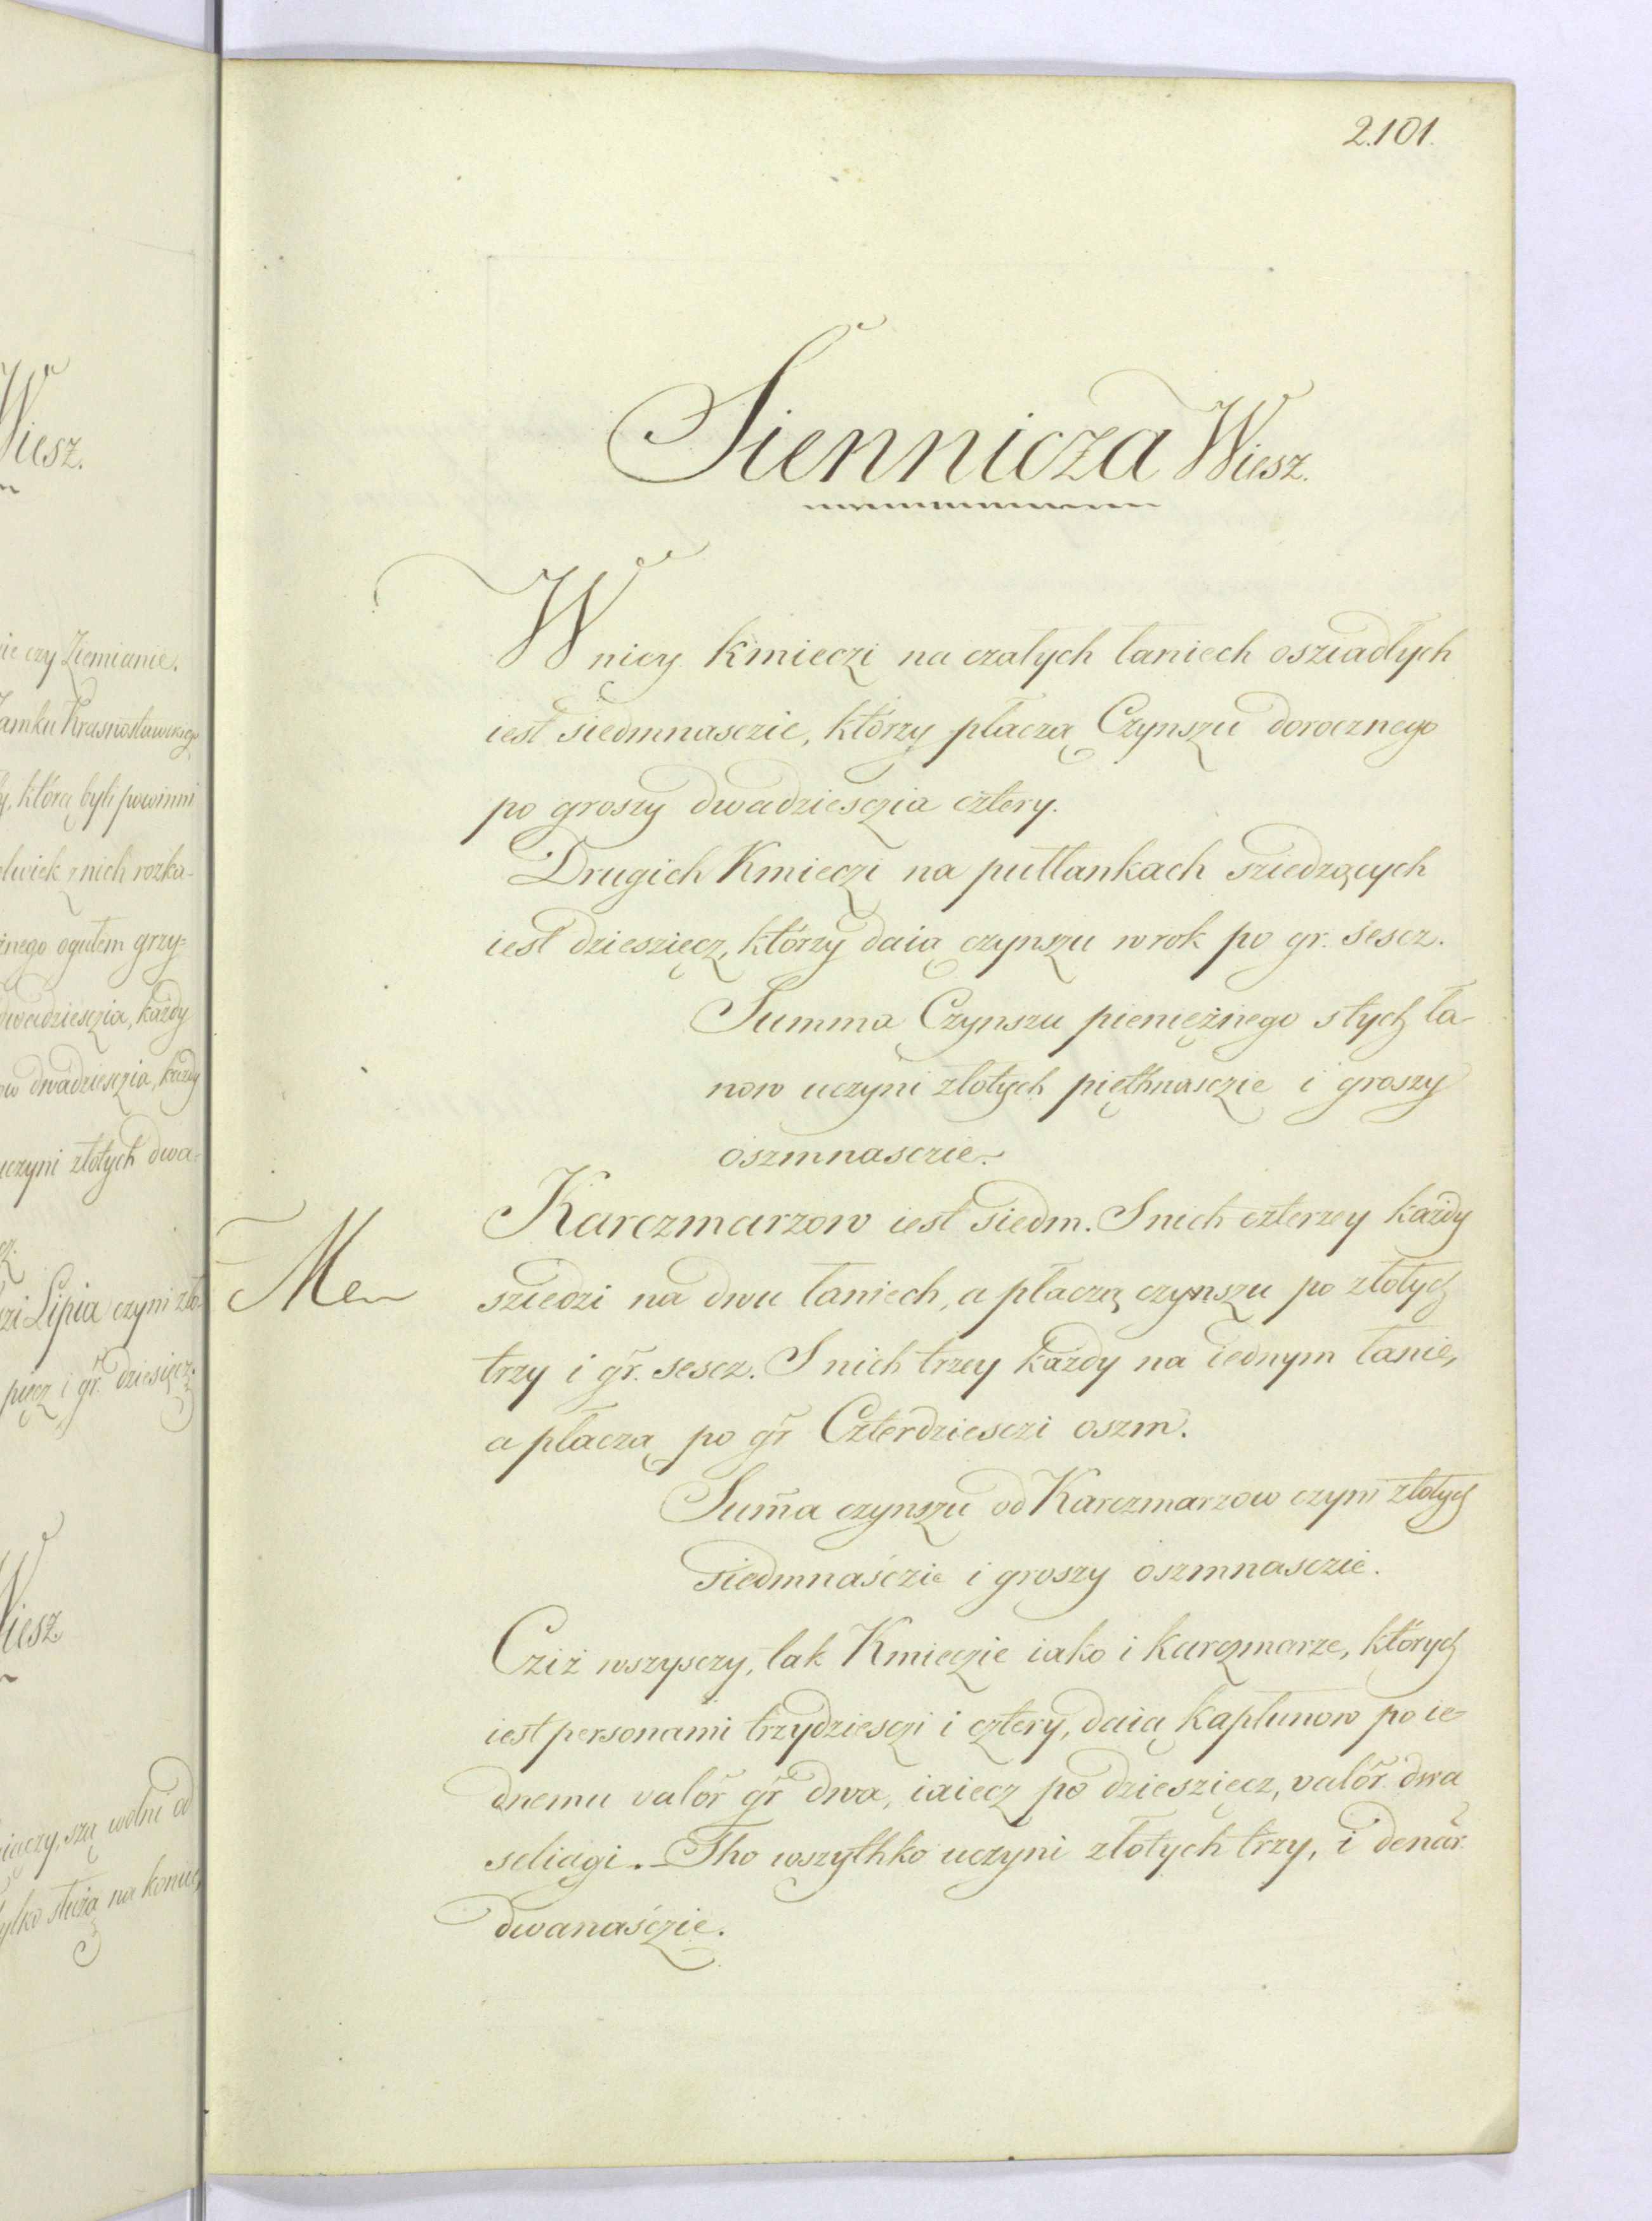 2.101.
Siennicza Wiesz.
W nicy Kmieczi na czałych łaniech osziadłych
iest siedmnasczie, którzy płaczą Czynszu dorocznego
po groszy dwadziesczia cztery.
Drugich Kmieczi na pułłankach sziedzących
iest dzieszięcz, którzy daią czynszu w rok po gr. sescz.
Summa Czynszu pieniężnego s tych ła-
now uczyni złotych pięthnasczie i groszy
oszmnasczie.
Karczmarzow iest siedm. S nich czterzey każdy
sziedzi na dwu łaniech, a płaczą czynszu po złotych
trzy i gr. sescz. S nich trzey każdy na iednym łanie,
a płaczą po gr Czterdziesczi oszm.
Sum̃a czynszu od Karczmarzow czyni złotych
siedmnaśczie i groszy oszmnasczie.
Cziż wszysczy, tak Kmieczie iako i karczmarze, których
iest personami trzydziesczi i cztery, daią kapłunow po ie-
dnemu valor gr dwa, iaiecz po dzieszięcz, valor dwa
seliągi. Tho wszythko uczyni złotych trzy, i denar.
dwanaśczie.
ie czy Ziemianie.
którą byli powinni
z nich rozka-
ogułem grzy-
dwadziesczia, każdy
dwadziesczia, każdy
złotych dwa-
Lipia czyni zło-
i gr. dziesięcz.
szą wolni od
służą na konie,